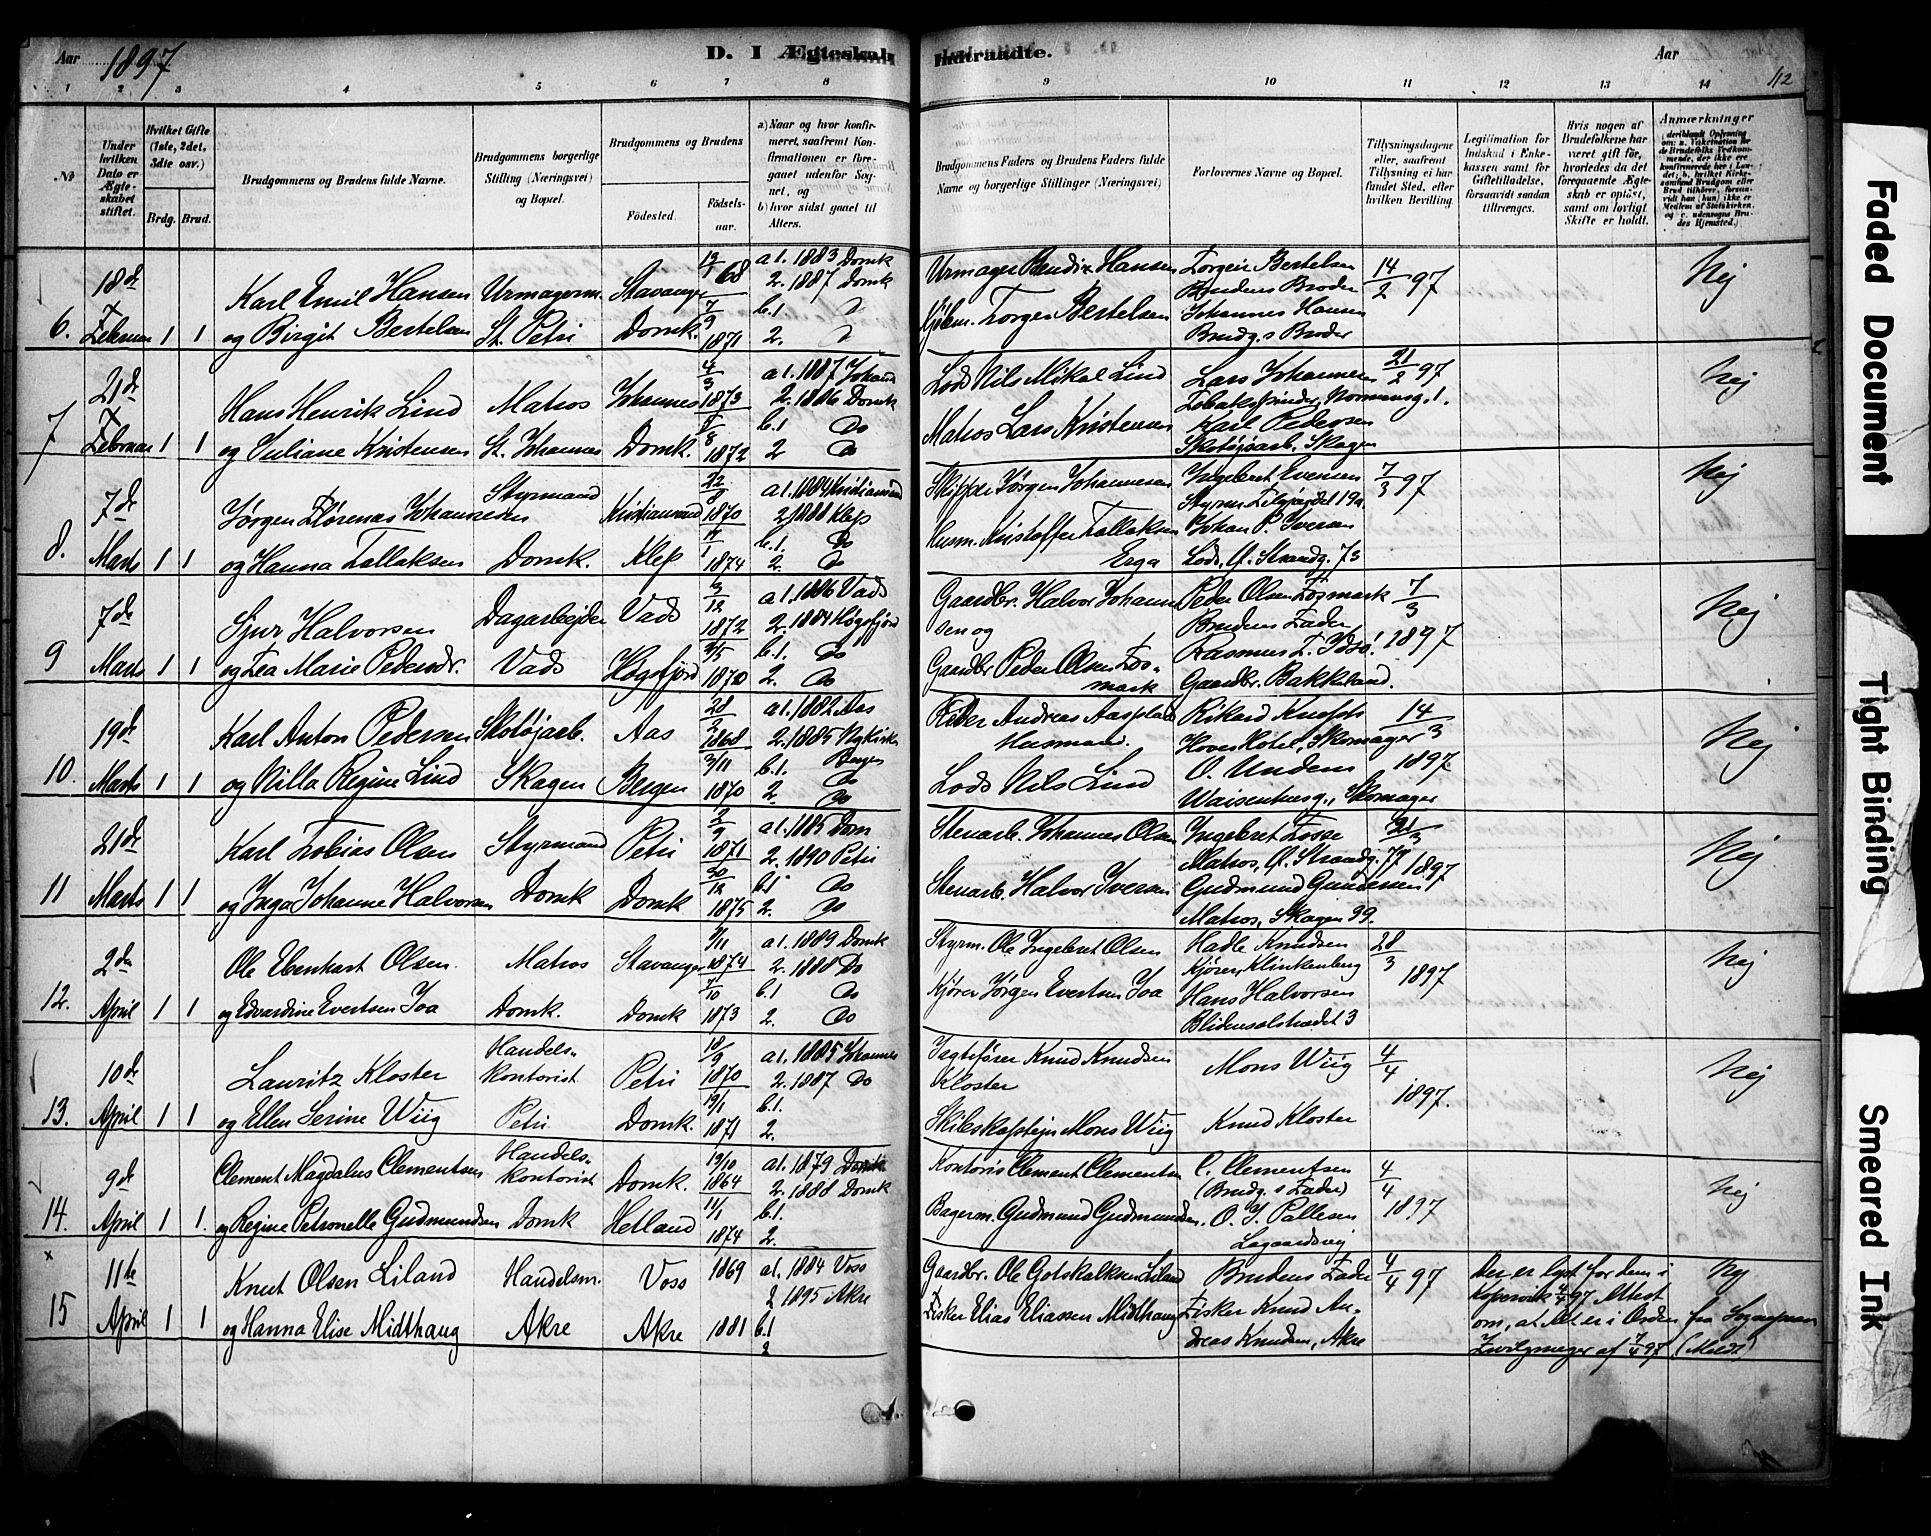 Aar 1897
D. I Ægteskab
Indtraadte.
Aar
112
1 2 3 4 5 6 7 8
9 10 11 12 13 14
No
Under hvilken Dato er Ægteskabet stiftet.
Hvilket Gifte (1ste, 2det, 3dte osv.)
Brdg. Brud.
Brudgommens og Brudens fulde Navne.
Brudgommens borgerlige Stilling (Næringsvei) og Bopæl.
Brudgommens og Brudens
Fødested.
Fødselsaar.
a) Naar og hvor konfirmeret, saafremt Konfirmationen er foregaaet udenfor Sognet, og
b) hvor sidst gaaet til Alters.
Brudgommens Faders og Brudens Faders fulde Navne og borgerlige Stillinger (Næringsvei)
Forlovernes Navne og Bopæl.
Tillysningsdagene eller, saafremt Tillysning ei har fundet Sted, efter hvilken Bevilling.
Legitimation for Indskud i Enkekassen samt for Giftetilladelse, forsaavidt saadan tiltrænges.
Hvis nogen af Brudefolkene har været gift før, hvorledes da det foregaaende Ægteskab er opløst, samt om lovligt Skifte er holdt.
Anmærkninger
6. 18de Februar 1 1
Karl Emil Hansen
og Birgit Bertelsen
Urmagerm.
St. Petri
Stavanger
Domk.
68
7/9 1871
a 1. 1883 Domk
2. 1887 Domk
b. 1
2.
Urmager Bendix Hansen
Torger Bertelsen
Torgein Bertelsen
Brudens Broder
Johannes Hansen
Brudg.s Broder
14/2 97
Nej
7 21de Februar 1 1
Hans Henrik Lind
og Juliane Kristensen
Matros
St. Johannes
Johannes
Domk.
4/3 1873
1872
a 1. 1887 Johans
2. 1886 Domk
b. 1 Do
2 Do
Lods Nils Mikal Lind
Matros Lars Kristensen
Lars Johannesen
Tobakspinder, Normannsg. 1.
Karl Pedersen
Skotøjsarb. Skagen
21/2 97
Nej
8. 7de Marts 1 1
Jørgen Florenas Johannesen
og Hanna Tallaksen
Styrmand
Domk.
Kristiansand
Klep
1870
1874
a 1. 1884 Kristiansand
2. 1888 Klep
b. 1. Do
2. Do
Skipper Jørgen Johannesen
Husm. Kristoffer Tallaksen
Erga
Ingebret Evensen
Johan P. Iversen
Lods, Ø. Strandg. 73
7/3 97
Nej
9 7de Marts 1 1
Sjur Halvorsen
og Lea Marie Pedersdr.
Dagarbejder
Vads
Vads
Høgsfjord
1872
1870
a 1. 1886 Vads
2. 1884 Høgsfjord
b. 1. Do
2. Do
Gaardbr. Halvor Johannesen
og
Gaardbr. Peder Olsen Fosmark
Peder Olsen Fosmark
Brudens Fader
Rasmus T. Idsø
Gaardbr. Bakkeland.
7/3 1897
Nej
10. 19de Marts 1 1
Karl Anton Pedersen
og Nilla Regine Lind
Skotøjarb.
Skagen
Aas
Bergen
28/2 1868
3/11 1870
a 1. 1882 Aas
2. 1885 Nykirk
Bergen
b. 1. Do
2. Do
Peder Andreas Aasplad
Husmand.
Lods Nils Lind
Rikard Knoph
Hoves Hotel, Skomager
O. Undens
Waisenhusg., Skomager
14/3 1897
Nej
11 21de Marts 1 1
Karl Tobias Olsen
og Inga Johanne Halvorsen
Styrmand
Domk
Petri
Domk
2/9 1871
30/12 1875
a 1. 1885 Dom
2. 1890 Petri
b. 1 Do
2. Do
Stenarb. Johannes Olsen
Stenarb. Halvor Iversen
Ingebret Fosse
Matros, Ø. Strandg. 77
Gudmund Gundersen
Matros, Skagen 39.
21/3 1897
Nej
12. 2den April 1 1
Ole Ebenhart Olsen
og Edvardine Evertsen Joa
Matros
Domk.
Stavanger
Domk
1874
7/10 1873
a 1. 1889 Domk
2. 1888 Do
b. 1 Do
2. Do
Styrm. Ole Ingebret Olsen
Kjører Jørgen Evertsen Joa
Hadle Knudsen
Kjører, Klinkenberg
Hans Halvorsen
Blidensolstrædet 3
28/3 1897
Nej
13. 10de April 1 1
Lauritz Kloster
og Ellen Serine Wiig
Handels-
kontorist
Petri
Petri
Domk.
18/9 1870
19/1 1871
a 1. 1885 Johannes
2. 1887 Do
b. 1.
2.
Jagtefører Knud Knudsen
Kloster
Skibskaptejn Mons Wiig
Mons Wiig
Knud Kloster
4/4 1897.
Nej
14. 9de April 1 1.
Clement Magdalus Clementsen
og Regine Petronelle Gudmundsen
Handels-
kontorist
Domk
Domk.
Hetland
19/10 1864
11/1 1874
a 1. 1879 Domk
2. 1888 Domk
b. 1.
2.
Kontoris Clement Clementsen
Bagerm. Gudmund Gudmundsen.
C. Clementsen
(Brudg.s Fader)
O. J. Pallesen
Lagaardsvej
4/4 1897
Nej
15 11te April 1 1
Knut Olsen Liland
og Hanna Elise Midthaug
Handelsm.
Akre
Voss
Akre
1869
1881
a 1. 1884 Voss
2 1895 Akre
b. 1
2
Gaardbr. Ole Gotskalksen Liland
Fisker Elias Eliassen Midthaug
Brudens Fader
Fisker Knud Andreas Knudsen, Akre
4/4 97
Der er lyst for dem i
Kopervik 4/4 97. Attest
om, at Alt er i Orden fra Sognepræn
af 7/4 97 (Meldt)
Nej
Faded Document
Tight Binding
Smeared Ink